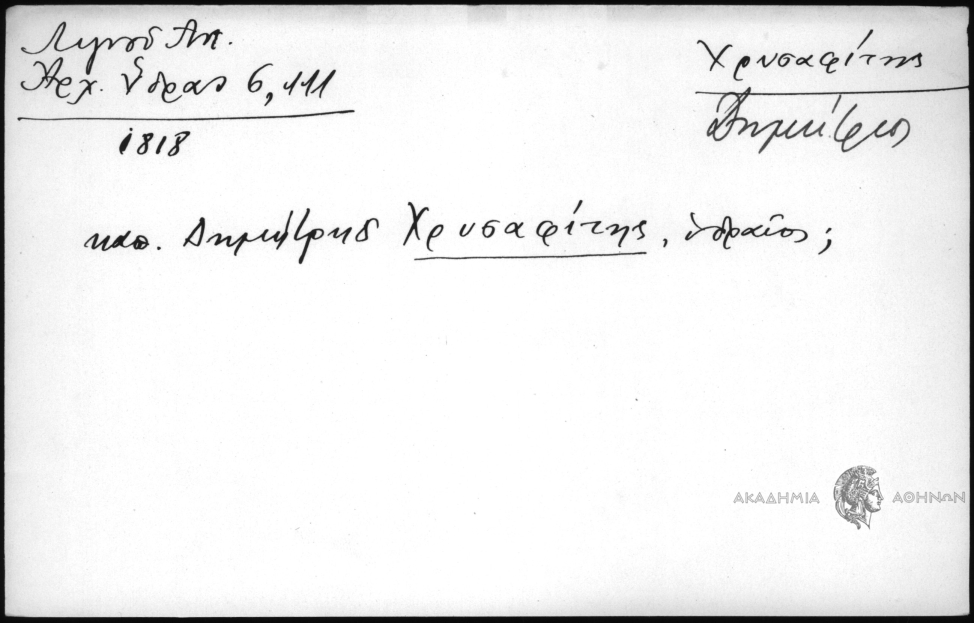 Λιγνοῦ Ἀντ.
Ἀρχ. Ὕδρας 6, 111
1818
Χρυσαφίτης
Δημήτριος
καπ. Δημήτρης Χρυσαφίτης, ὑδραῖος;
ΑΚΑΔΗΜΙΑ ΑΘΗΝΩΝ